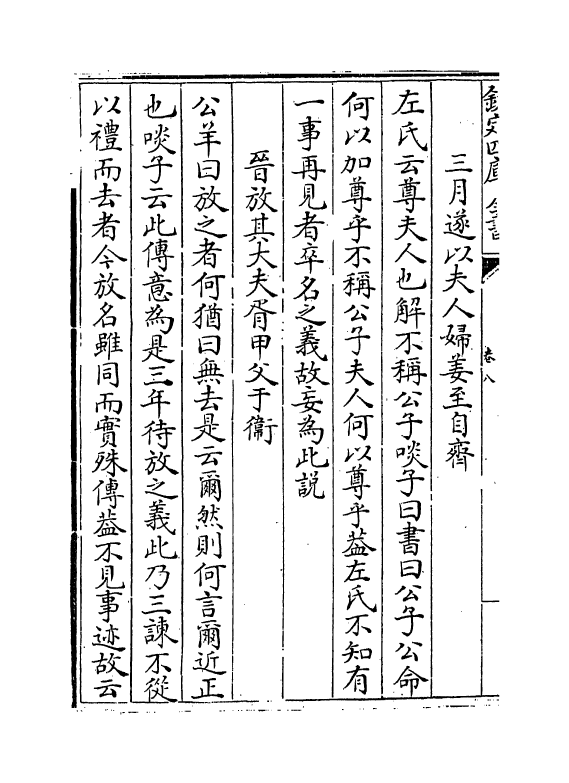 欽定四庫全書
卷八
三月遂以夫人婦姜至自齊
左氏云尊夫人也解不稱公子啖子曰書曰公子公命
何以加尊乎不稱公子夫人何以尊乎葢左氏不知有
一事再見者卒名之義故妄為此説
晉放其大夫胥甲父于衞
公羊曰放之者何猶曰無去是云爾然則何言爾近正
也啖子云此傳意為是三年待放之義此乃三諌不從
以禮而去者今放名雖同而實殊傳葢不見事迹故云